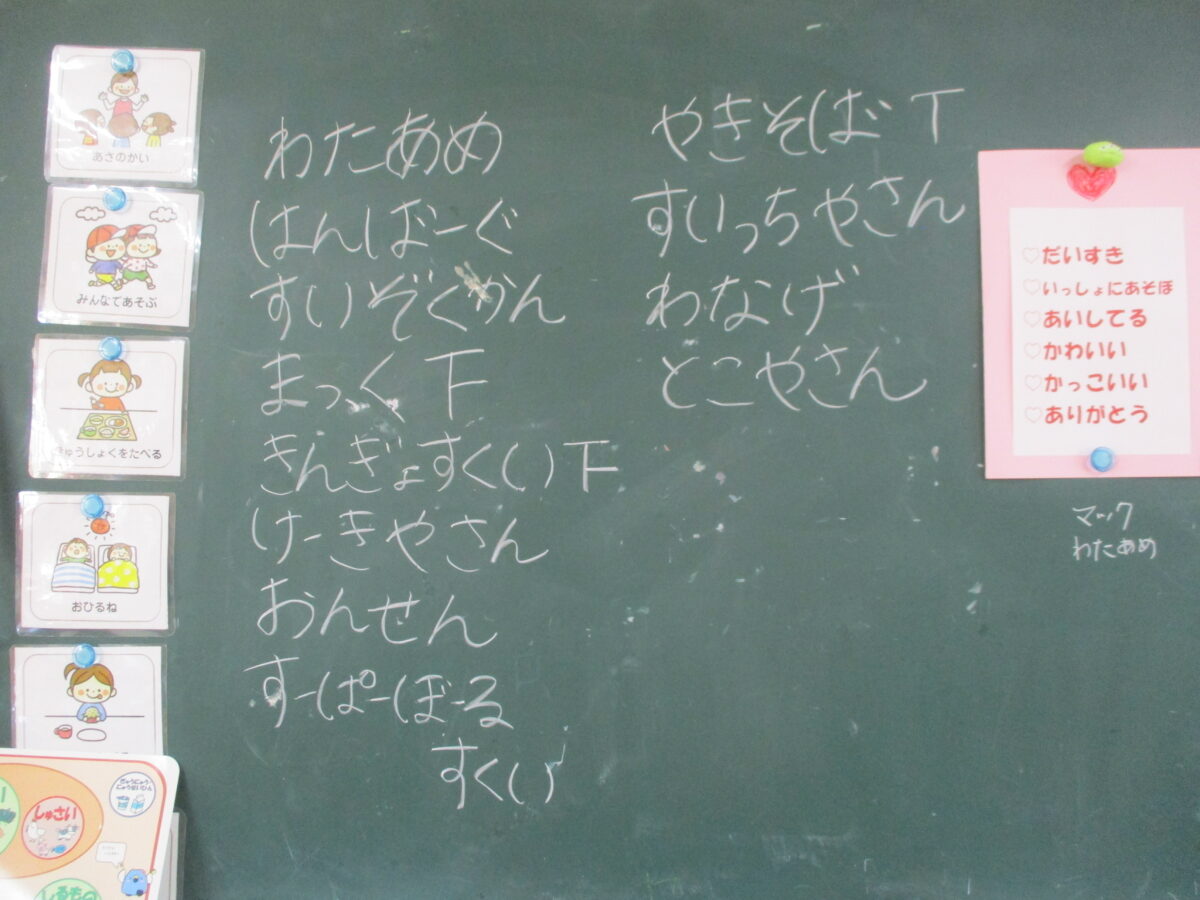 あさのかい
みんなであそぶ
きゅうしょくをたべる
おひるね
しゅさい
ぎゅうにゅう
しるもの
わたあめ
はんばーぐ
すいぞくかん
まっく 下
きんぎょすくい 下
けーきやさん
おんせん
すーぱーぼーる
すくい
やきそば T
すいっちやさん
わなげ
とこやさん
♡だいすき
♡いっしょにあそぼ
♡あいしてる
♡かわいい
♡かっこいい
♡ありがとう
マック
わたあめ